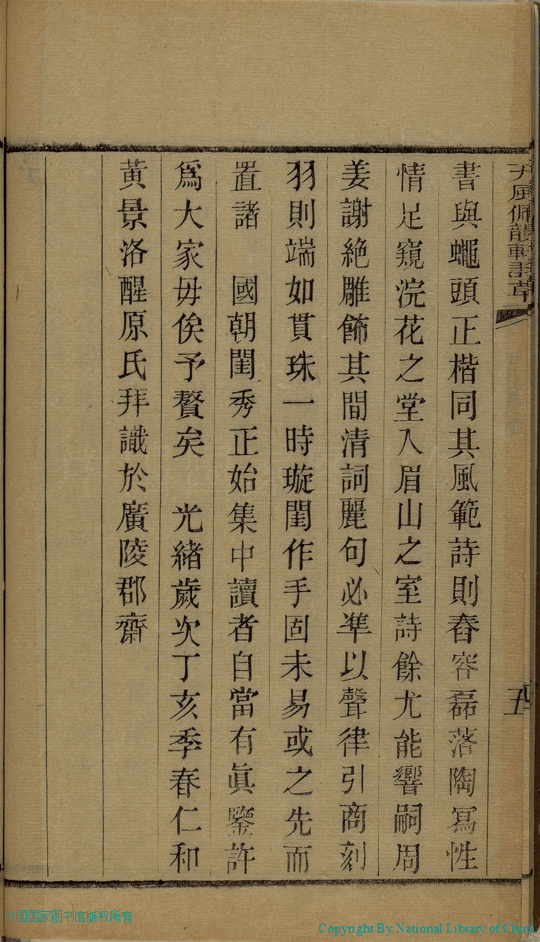 書與蠅頭正楷同其風範詩則舂容磊落陶寫性
情足窺浣花之堂入眉山之室詩餘尤能響嗣周
姜謝絶雕飾其間清詞麗句必準以聲律引商刻
羽則端如貫珠一時璇閨作手固未易或之先而
置諸　國朝閨秀正始集中讀者自當有眞鑒許
爲大家毋俟予贅矣　光緒歲次丁亥季春仁和
黃景洛醒原氏拜識於廣陵郡齋
風佩韻軒詩草
五
中国国家图书馆版权所有
Copyright By National Library of China